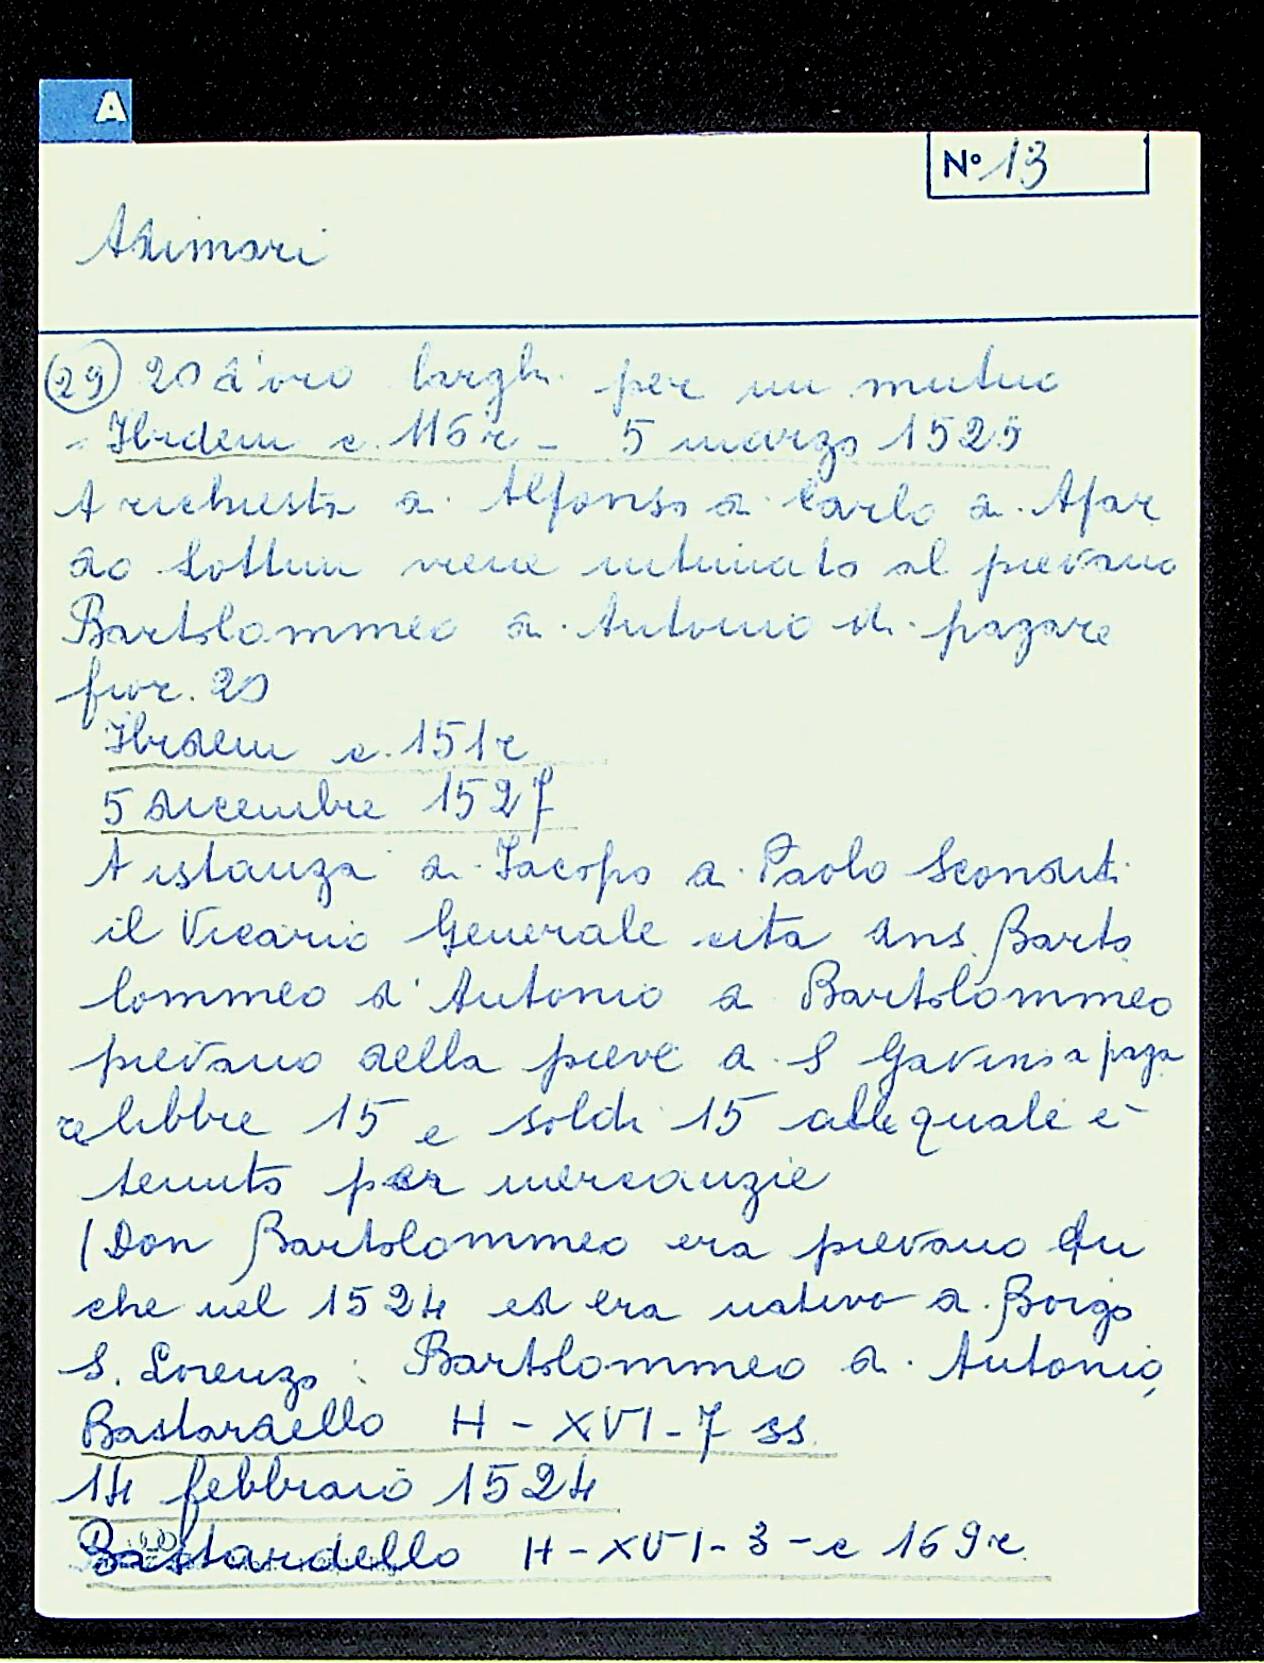 A
N° 13
Adimari
(29) 20 d'oro larghi per un mutuo
- Ibidem c. 116r - 5 marzo 1525
A richiesta di Alfonso di Carlo di
do Sottun viene intimato al pievano
Bartolommeo di Antonio di pagare
fior. 20
Ibidem c. 151r
5 dicembre 1527
A istanza di Jacopo di Paolo
il Vicario Generale cita dns. Barto
lommeo d'Antonio di Bartolommeo
pievano della pieve di S Gavino a paga
re libbre 15 e soldi 15 alle quale è
tenuto per mercanzie
(Don Bartolommeo era pievano an
che nel 1524 ed era nativo di Borgo
S. Lorenzo: Bartolommeo di Antonio,
Bastardello H - XVI - 7 ss.
14 febbraio 1524
Bastardello H - XVI - 3 - c 169r.